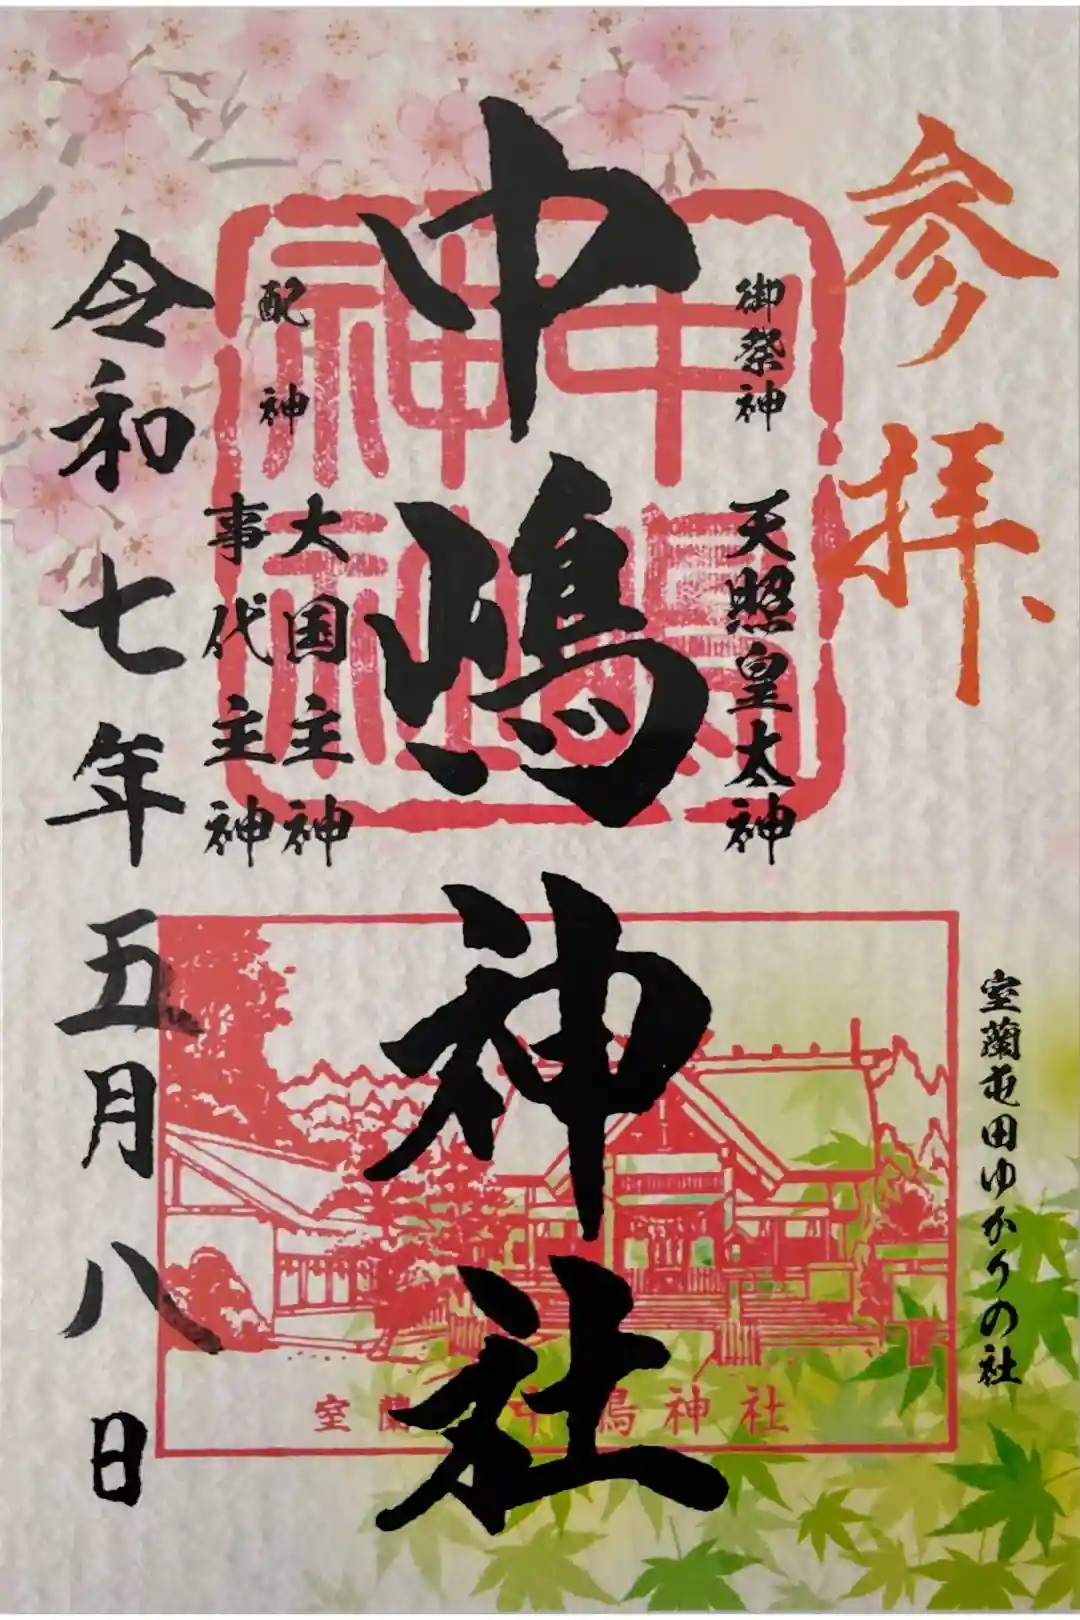 参拝、
室蘭屯田ゆかりの社
御祭神
天照皇太神
中嶋神社
配神
大国主神
事代主神
令和七年五月八日
中嶋
神社
室蘭 中嶋神社